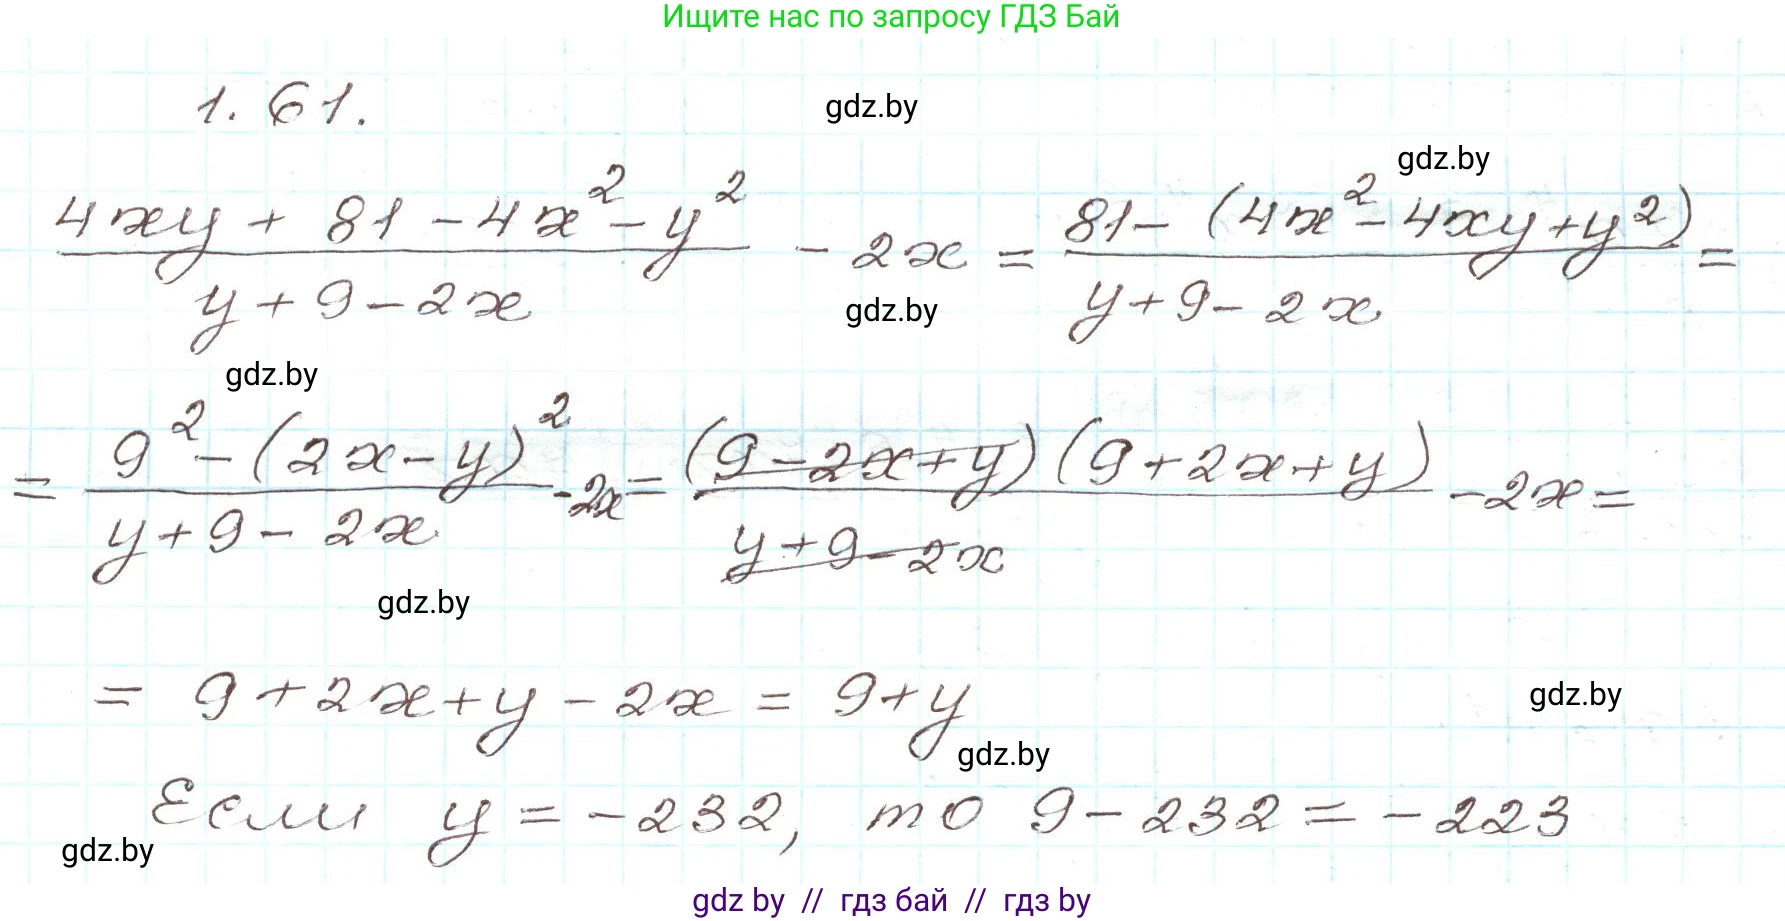 Ищите нас по запросу ГДЗ Бай
1.61.
gdz.by
gdz.by
4xy + 81 - 4x² - y² / y + 9 - 2x - 2x = 81 - (4x² - 4xy + y²) / y + 9 - 2x =
gdz.by
gdz.by
= 9² - (2x - y)² / y + 9 - 2x - 2x = (9 - 2x + y)(9 + 2x + y) / y + 9 - 2x - 2x =
gdz.by
= 9 + 2x + y - 2x = 9 + y
gdz.by
gdz.by
Если y = -232, то 9 - 232 = -223
gdz.by
gdz by // гдз бай // гдз by